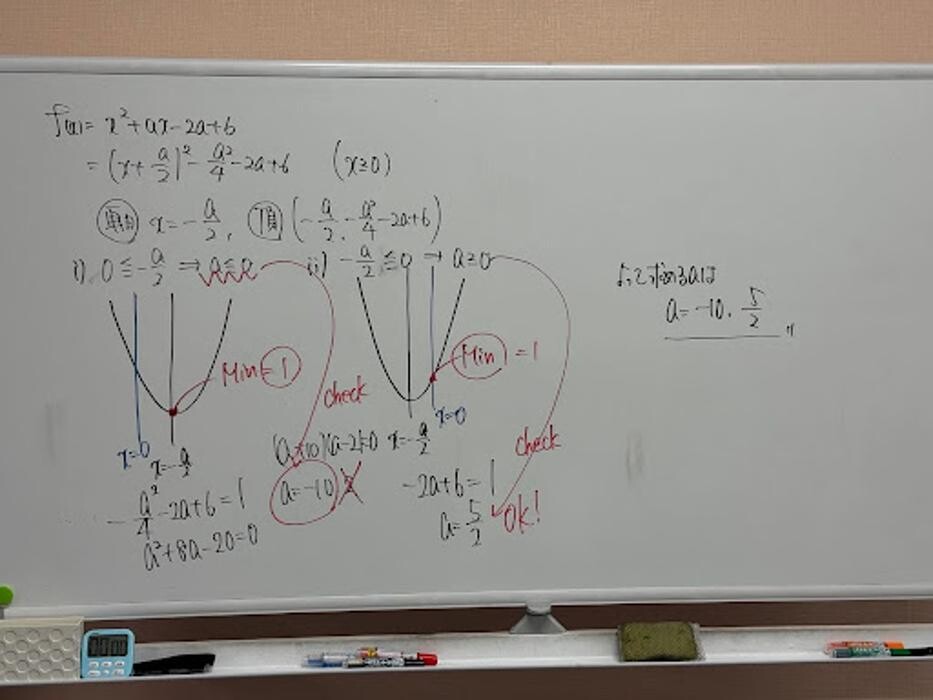 f(x) = x² + ax - 2a + 6
= (x + a/2)² - a²/4 - 2a + 6 (x ≧ 0)
軸 x = -a/2, 頂 (-a/2, -a²/4 - 2a + 6)
i) 0 ≦ -a/2 → a ≦ 0
Min = 1
check
x=0
x = -a/2
-a²/4 - 2a + 6 = 1
a² + 8a - 20 = 0
(a+10)(a-2)=0
a = -10, 2
ii) -a/2 ≦ 0 → a ≧ 0
Min = 1
x=0
x = -a/2
check
-2a + 6 = 1
a = 5/2
OK!
よって求めるaは
a = -10, 5/2 〃